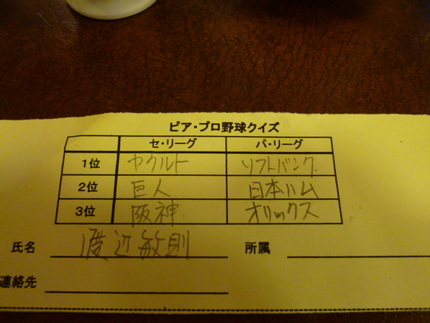 ピア・プロ野球クイズ
セ・リーグ パ・リーグ
1位 ヤクルト ソフトバンク
2位 巨人 日本ハム
3位 阪神 オリックス
氏名 渡辺敏則 所属
連絡先